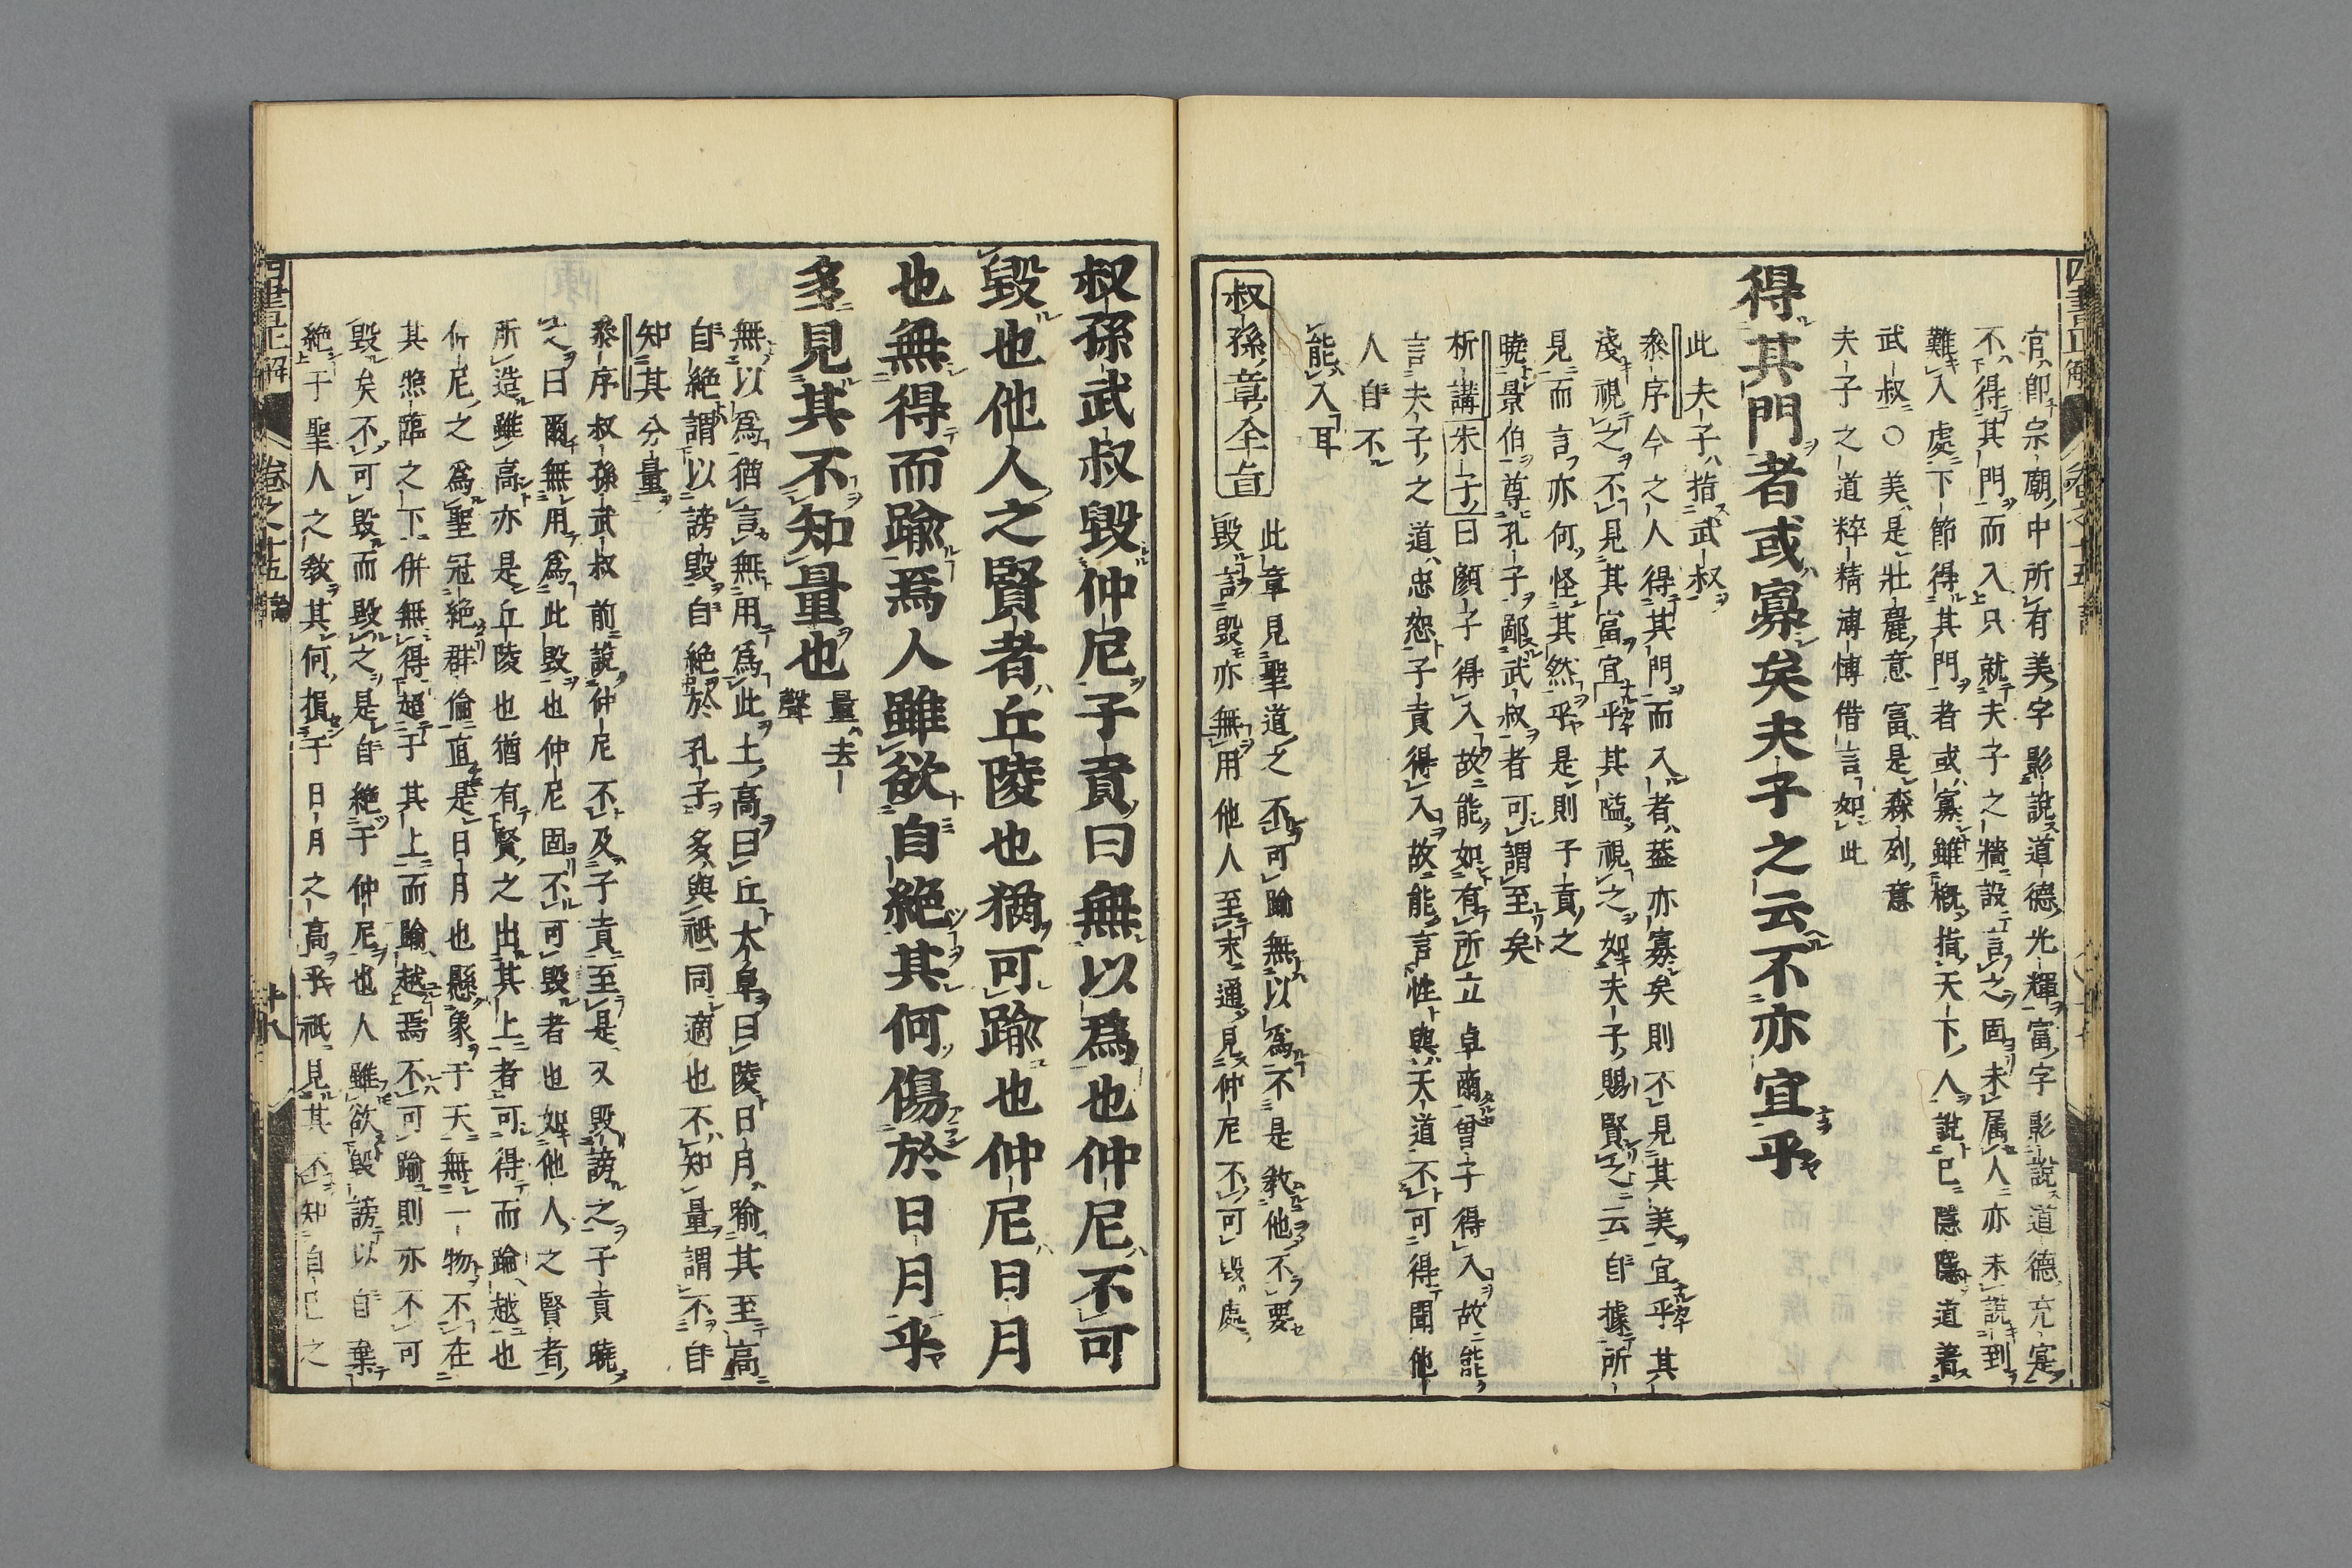 官即宗廟中所有美字影說道德光輝富字影說道德充寔
不得其門而入只就夫子之牆設言之固未属人亦未說到
難入處下節得其門者或寡雖概指天下人說已隱隱道着
武叔〇美是壯麗意富是森列意
夫子之道粹精溥博借言如此
得其門者或寡矣夫子之云不亦宜乎
此夫子指武叔
叅序今之人得其門而入者葢亦寡矣則不見其美宜乎其
淺視之不見其富宜乎其隘視之如夫子賜賢之云自據所
見而言亦何怪其然乎是則子貢之
曉景伯尊孔子鄙武叔者可謂至矣
析講朱子曰顏子得入故能如有所立卓爾曾子得入故能
言夫子之道忠恕子貢得入故能言性與天道不可得聞他
人自不
能入耳
叔孫章全旨
此章見聖道之不可踰無以爲不是教他不要
毀訒毀亦無用他人至末通見仲尼不可毀處
叔孫武叔毀仲尼子貢曰無以爲也仲尼不可
毀也他人之賢者丘陵也猶可踰也仲尼日月
也無得而踰焉人雖欲自絕其何傷於日月乎
多見其不知量也
量去
聲
無以爲猶言無用爲此土高曰丘大阜曰陵日月喻其至高
自絕謂以謗毀自絕於孔子多與祗同適也不知量謂不自
知其分量
叅序叔孫武叔前說仲尼不及子貢至是又毀謗之子貢曉
之曰爾無用爲此毀也仲尼固不可毀者也如他人之賢者
所造雖高亦是丘陵也猶有賢之出其上者可得而踰越也
仲尼之爲聖冠絕群倫直是日月也懸象于天無一物不在
其照臨之下併無得超于其上而踰越焉不可踰則亦不可
毀矣不可毀而毀之是自絕于仲尼也人雖欲毀謗以自棄
絕于聖人之教其何損于日月之高乎祇見其不知自己之
四書正解
卷之十五
十八